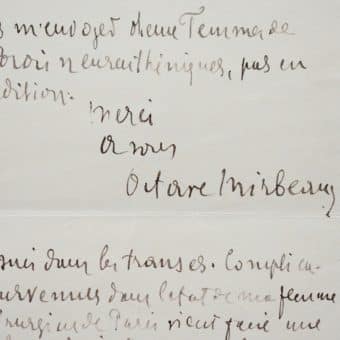 s m'envoyez Femme de
neurasthéniques, pas en
dition.
Merci
à vous
Octave Mirbeau
suis dans les transes. Complica-
urvenues dans l'état de ma femme
irurgien de Paris vient faire une